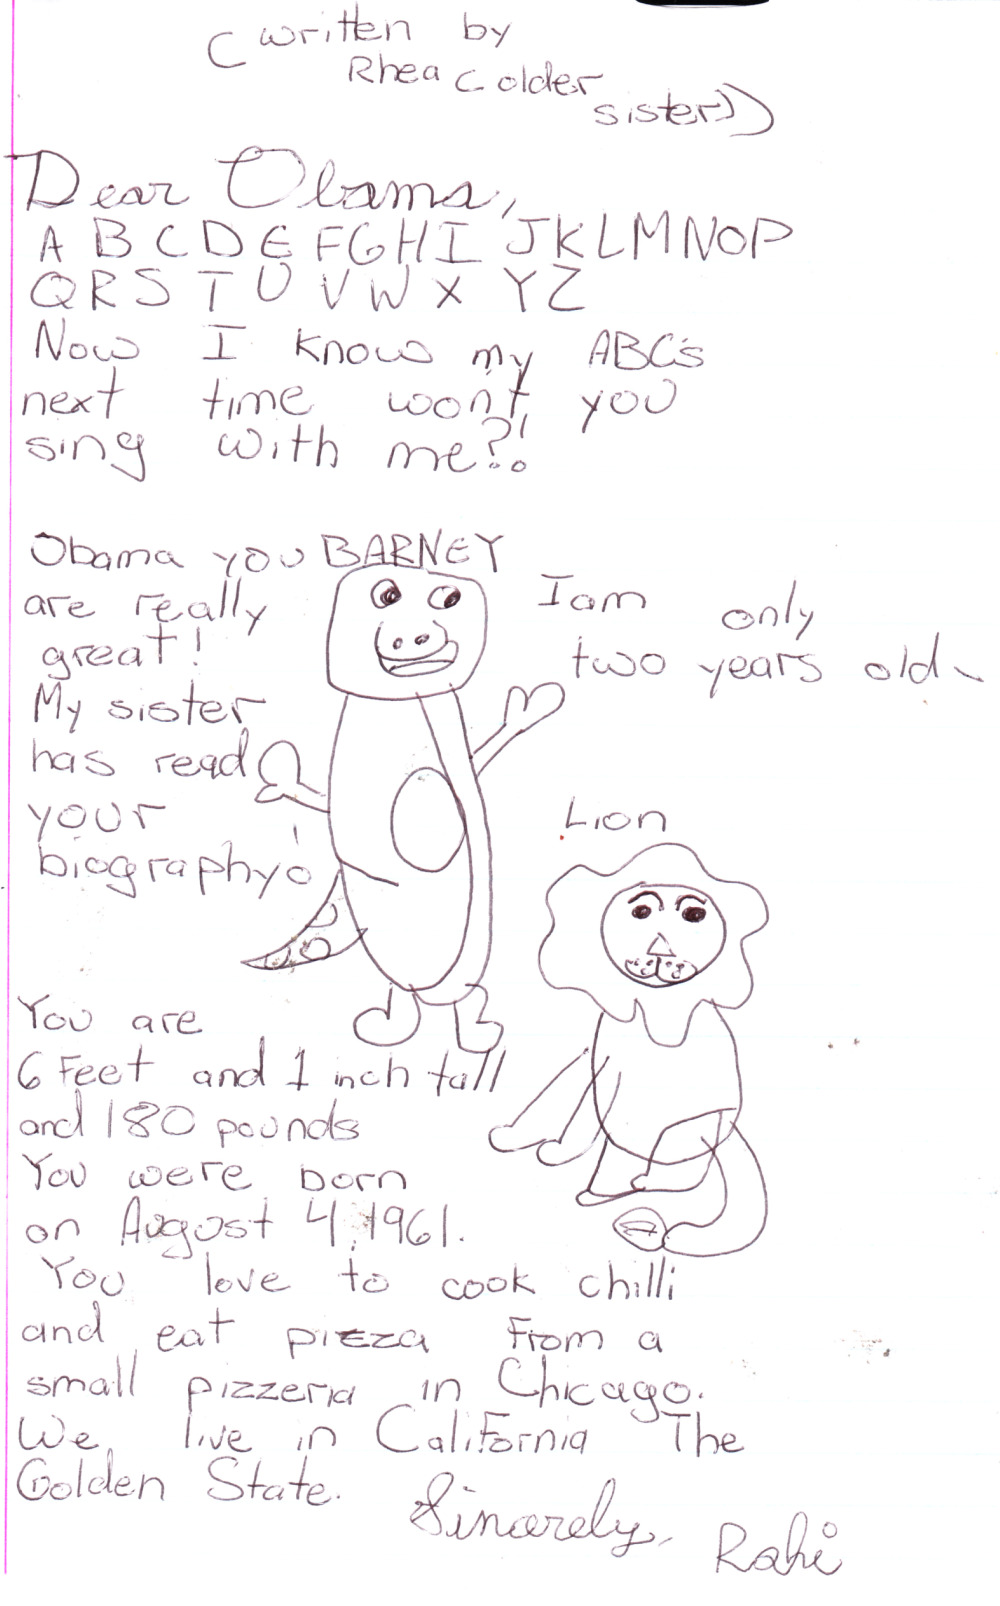 ( written by
Rhea ( older
sister))
Dear Obama,
A B C D E F G H I J K L M N O P
Q R S T U V W X Y Z
Now I know my ABC's
next time won't you
sing with me?!
Obama you
are really
great!
My sister
has read
your
biography!
BARNEY
I am only
two years old.
Lion
You are
6 Feet and 1 inch tall
and 180 pounds
You were born
on August 4, 1961.
You love to cook chilli
and eat pizza From a
small pizzeria in Chicago.
We live in California The
Golden State.
Sincerely,
Rahi